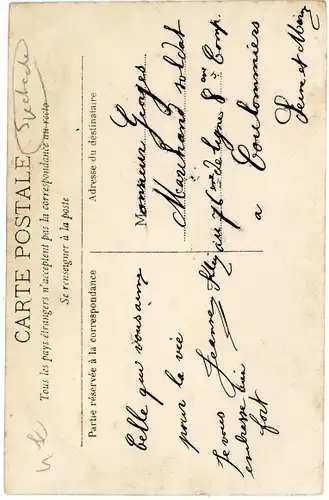 CARTE POSTALE
Tous les pays étrangers n'acceptent pas la correspondance au recto
Se renseigner à la poste
Spectacle
Partie réservée à la correspondance
Adresse du destinataire
Celle qui vous aime
pour la vie
Jeanne
Je vous
embrasse bien
fort
Monsieur Georges
Marchand soldat
au 76me de ligne 8me Comp.
a Coulommiers
Seine et Marne